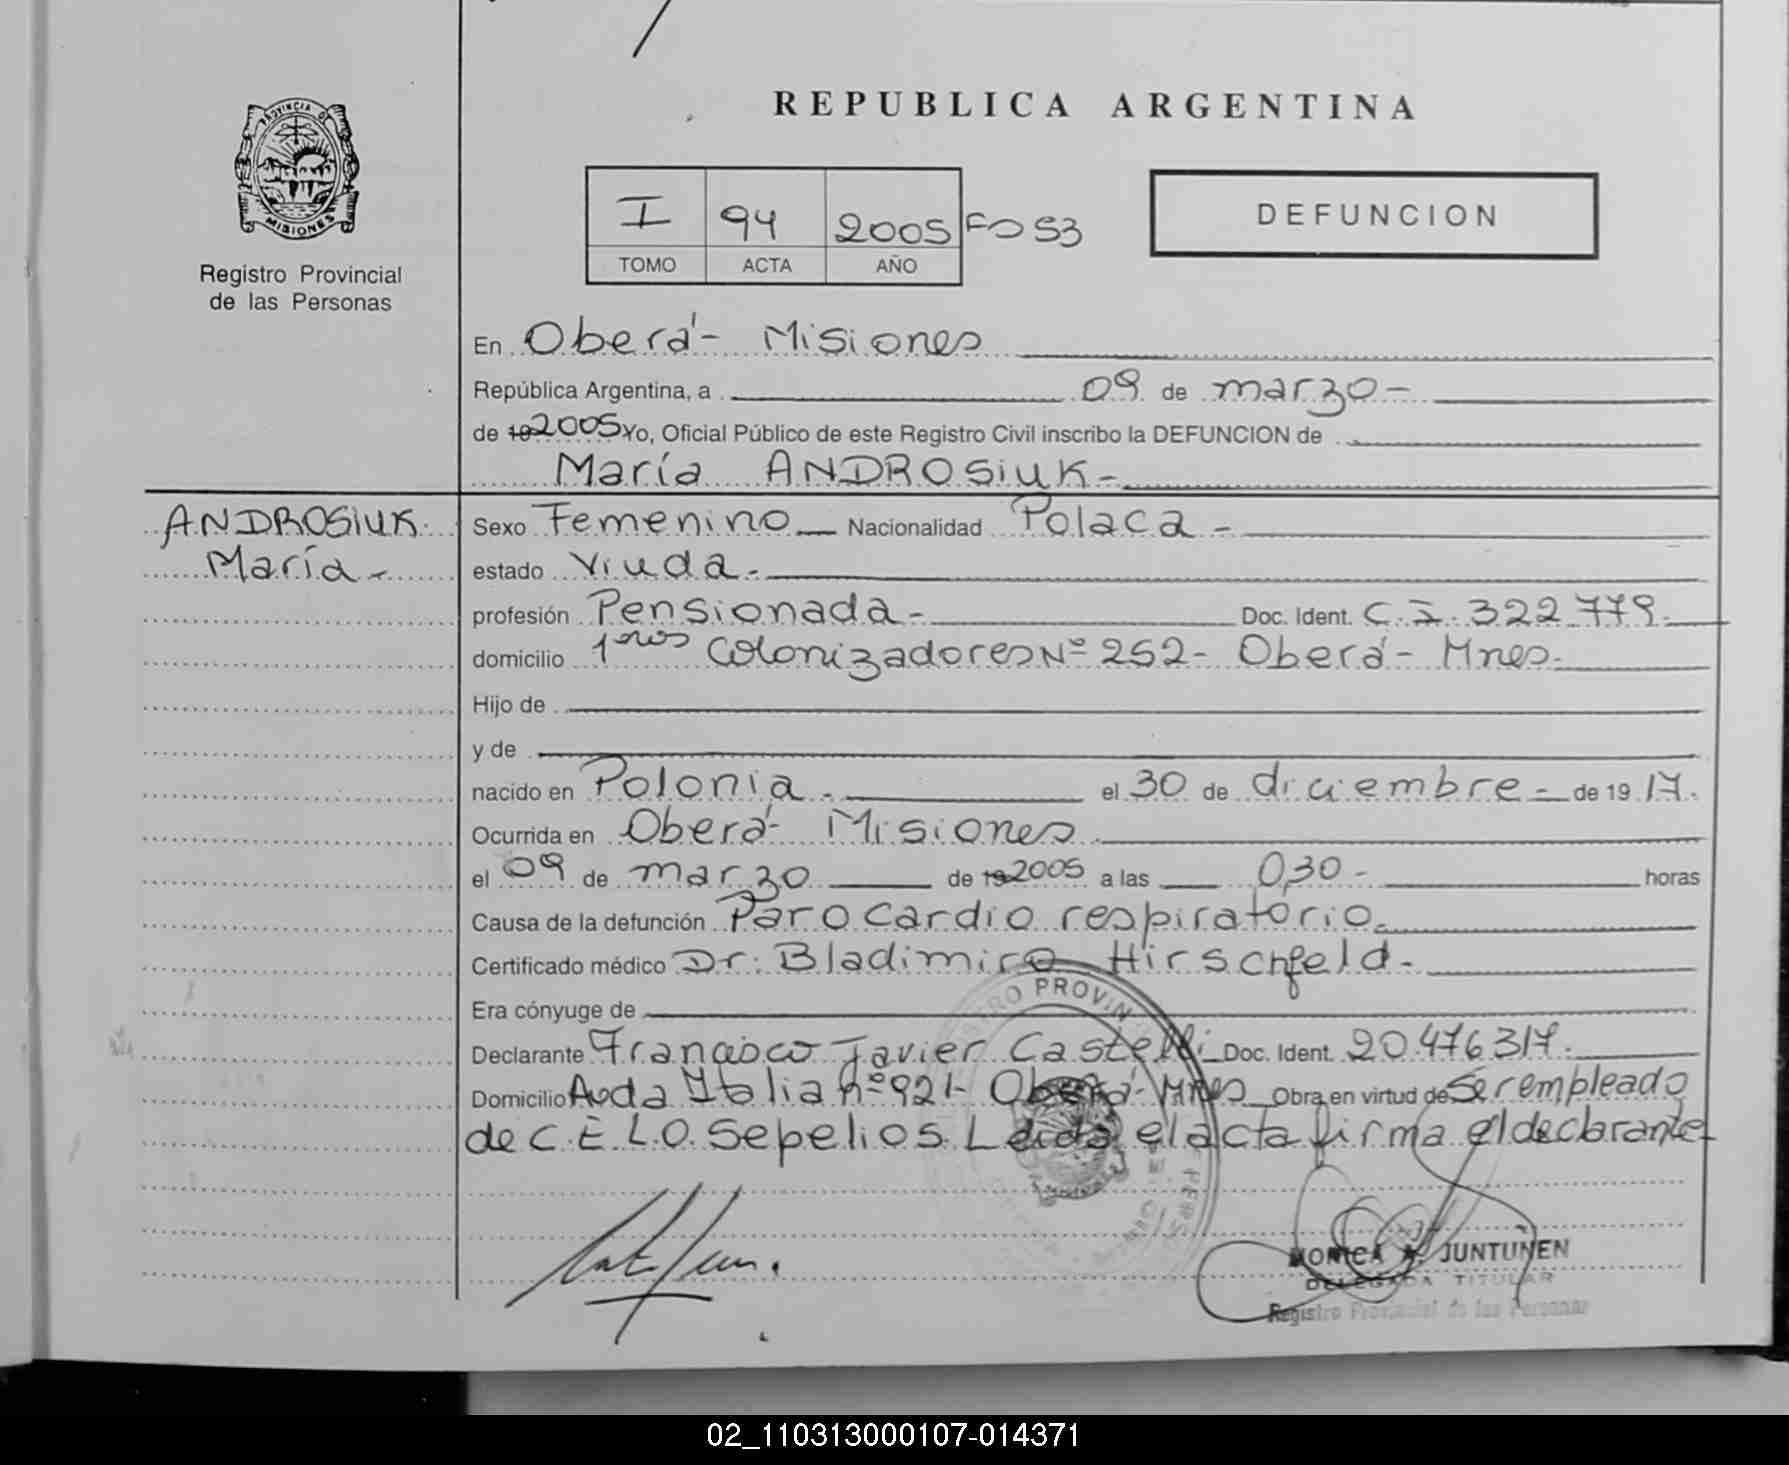 REPUBLICA ARGENTINA
PROVINCIA DE
MISIONES
Registro Provincial
de las Personas
I 94 2005 Fo 53
TOMO ACTA AÑO
DEFUNCION
En Oberá - Misiones
República Argentina, a 09 de marzo -
de 19 2005 Yo, Oficial Público de este Registro Civil inscribo la DEFUNCION de
María ANDROSIUK -
ANDROSIUK
María -
Sexo Femenino Nacionalidad Polaca -
estado Viuda -
profesión Pensionada - Doc. Ident. C.I. 322.779.
domicilio 1ros Colonizadores Nº 252 - Oberá - Mnes.
Hijo de
y de
nacido en Polonia - el 30 de diciembre - de 19 17.
Ocurrida en Oberá - Misiones
el 09 de marzo de 19 2005 a las 0,30 - horas
Causa de la defunción Paro cardio respiratorio.
Certificado médico Dr: Bladimiro Hirschfeld -
Era cónyuge de
Declarante Francisco Javier Castelli Doc. Ident. 20.476.317.
Domicilio Avda Italia nº 921 - Oberá - Mnes Obra en virtud de Ser empleado
de C.E.L.O. Sepelios. Leida el acta firma el declarante
PROVIN
MONICA A. JUNTUNEN
DELEGADA TITULAR
Registro Provincial de las Personas
02_110313000107-014371